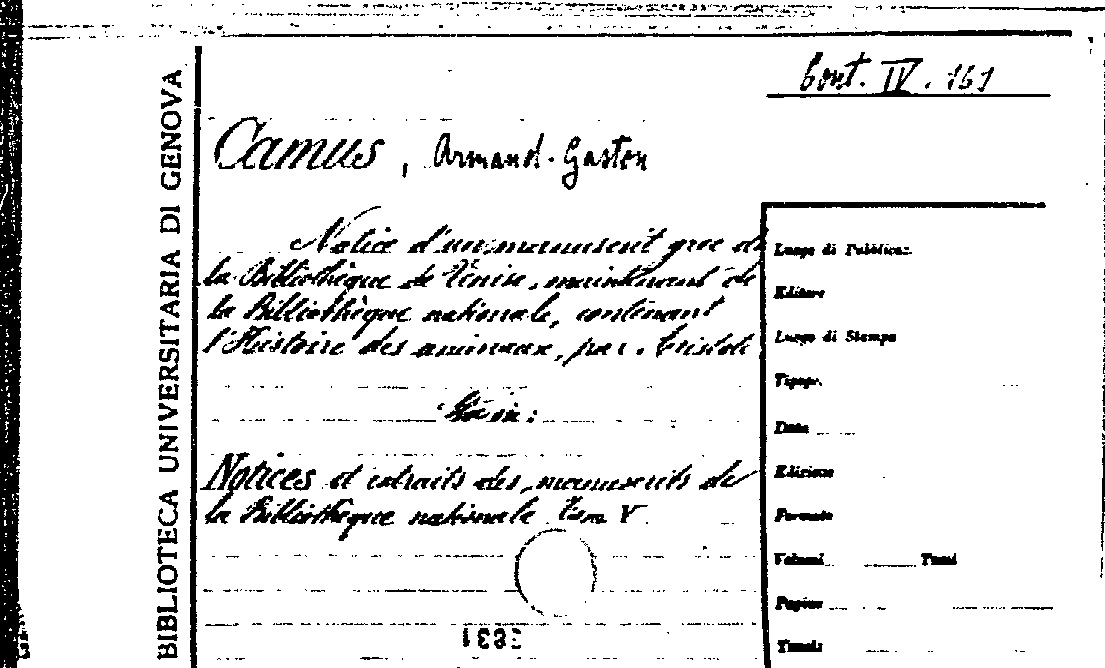 Cont. IV. 161
BIBLIOTECA UNIVERSITARIA DI GENOVA
Camus, Armand-Gaston
Notice d'un manuscrit grec de
la Bibliothèque de Venise, maintenant de
la Bibliothèque nationale, contenant
l'Histoire des animaux, par Aristote
Sta in:
Notices et extraits des manuscrits de
la Bibliothèque nationale Tom V
Luogo di Pubblicaz.
Editore
Luogo di Stampa
Tipogr.
Data
Edizione
Formato
Volumi Tomi
Pagine